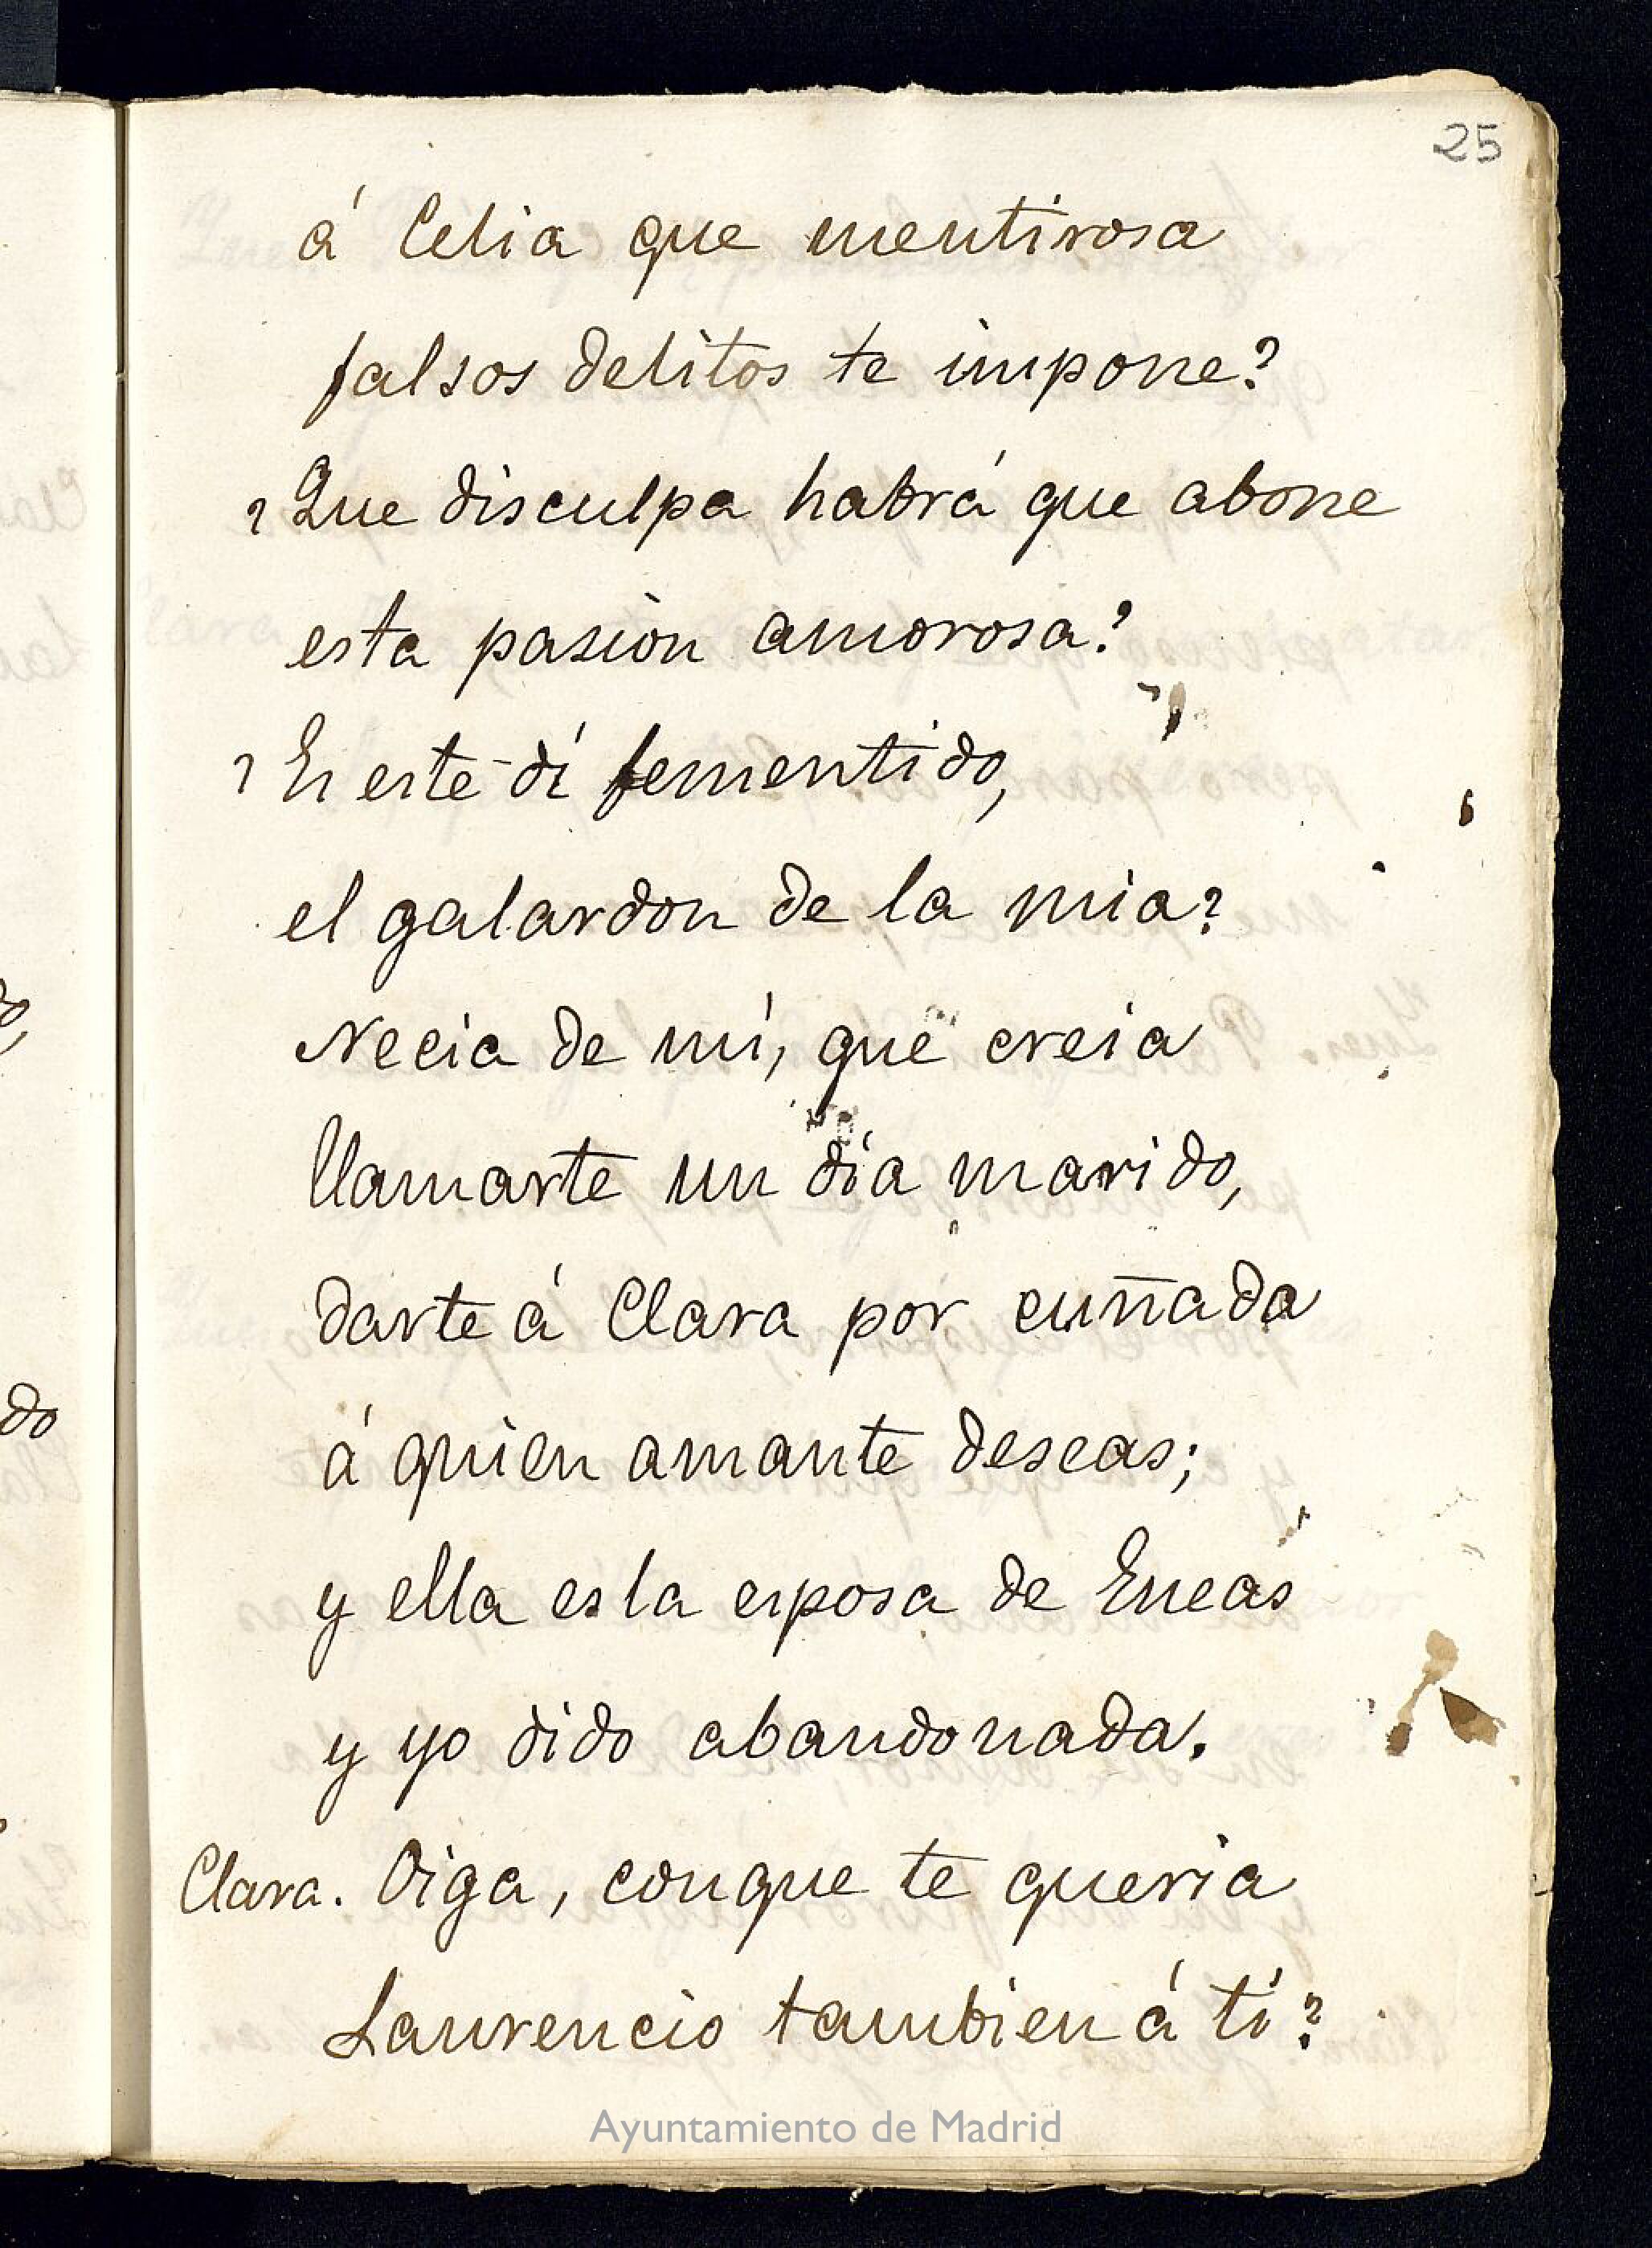 25
á Celia que mentirosa
falsos delitos te impone?
¿Que disculpa habrá que abone
esta pasion amorosa?
¿Es este dí fementido,
el galardon de la mia?
Necia de mí, que creia
llamarte un día marido,
darte á Clara por cuñada
á quien amante deseas;
y ella es la esposa de Eneas
y yo dido abandonada.
Clara. Oiga, conque te queria
Laurencio tambien á tí?
Ayuntamiento de Madrid